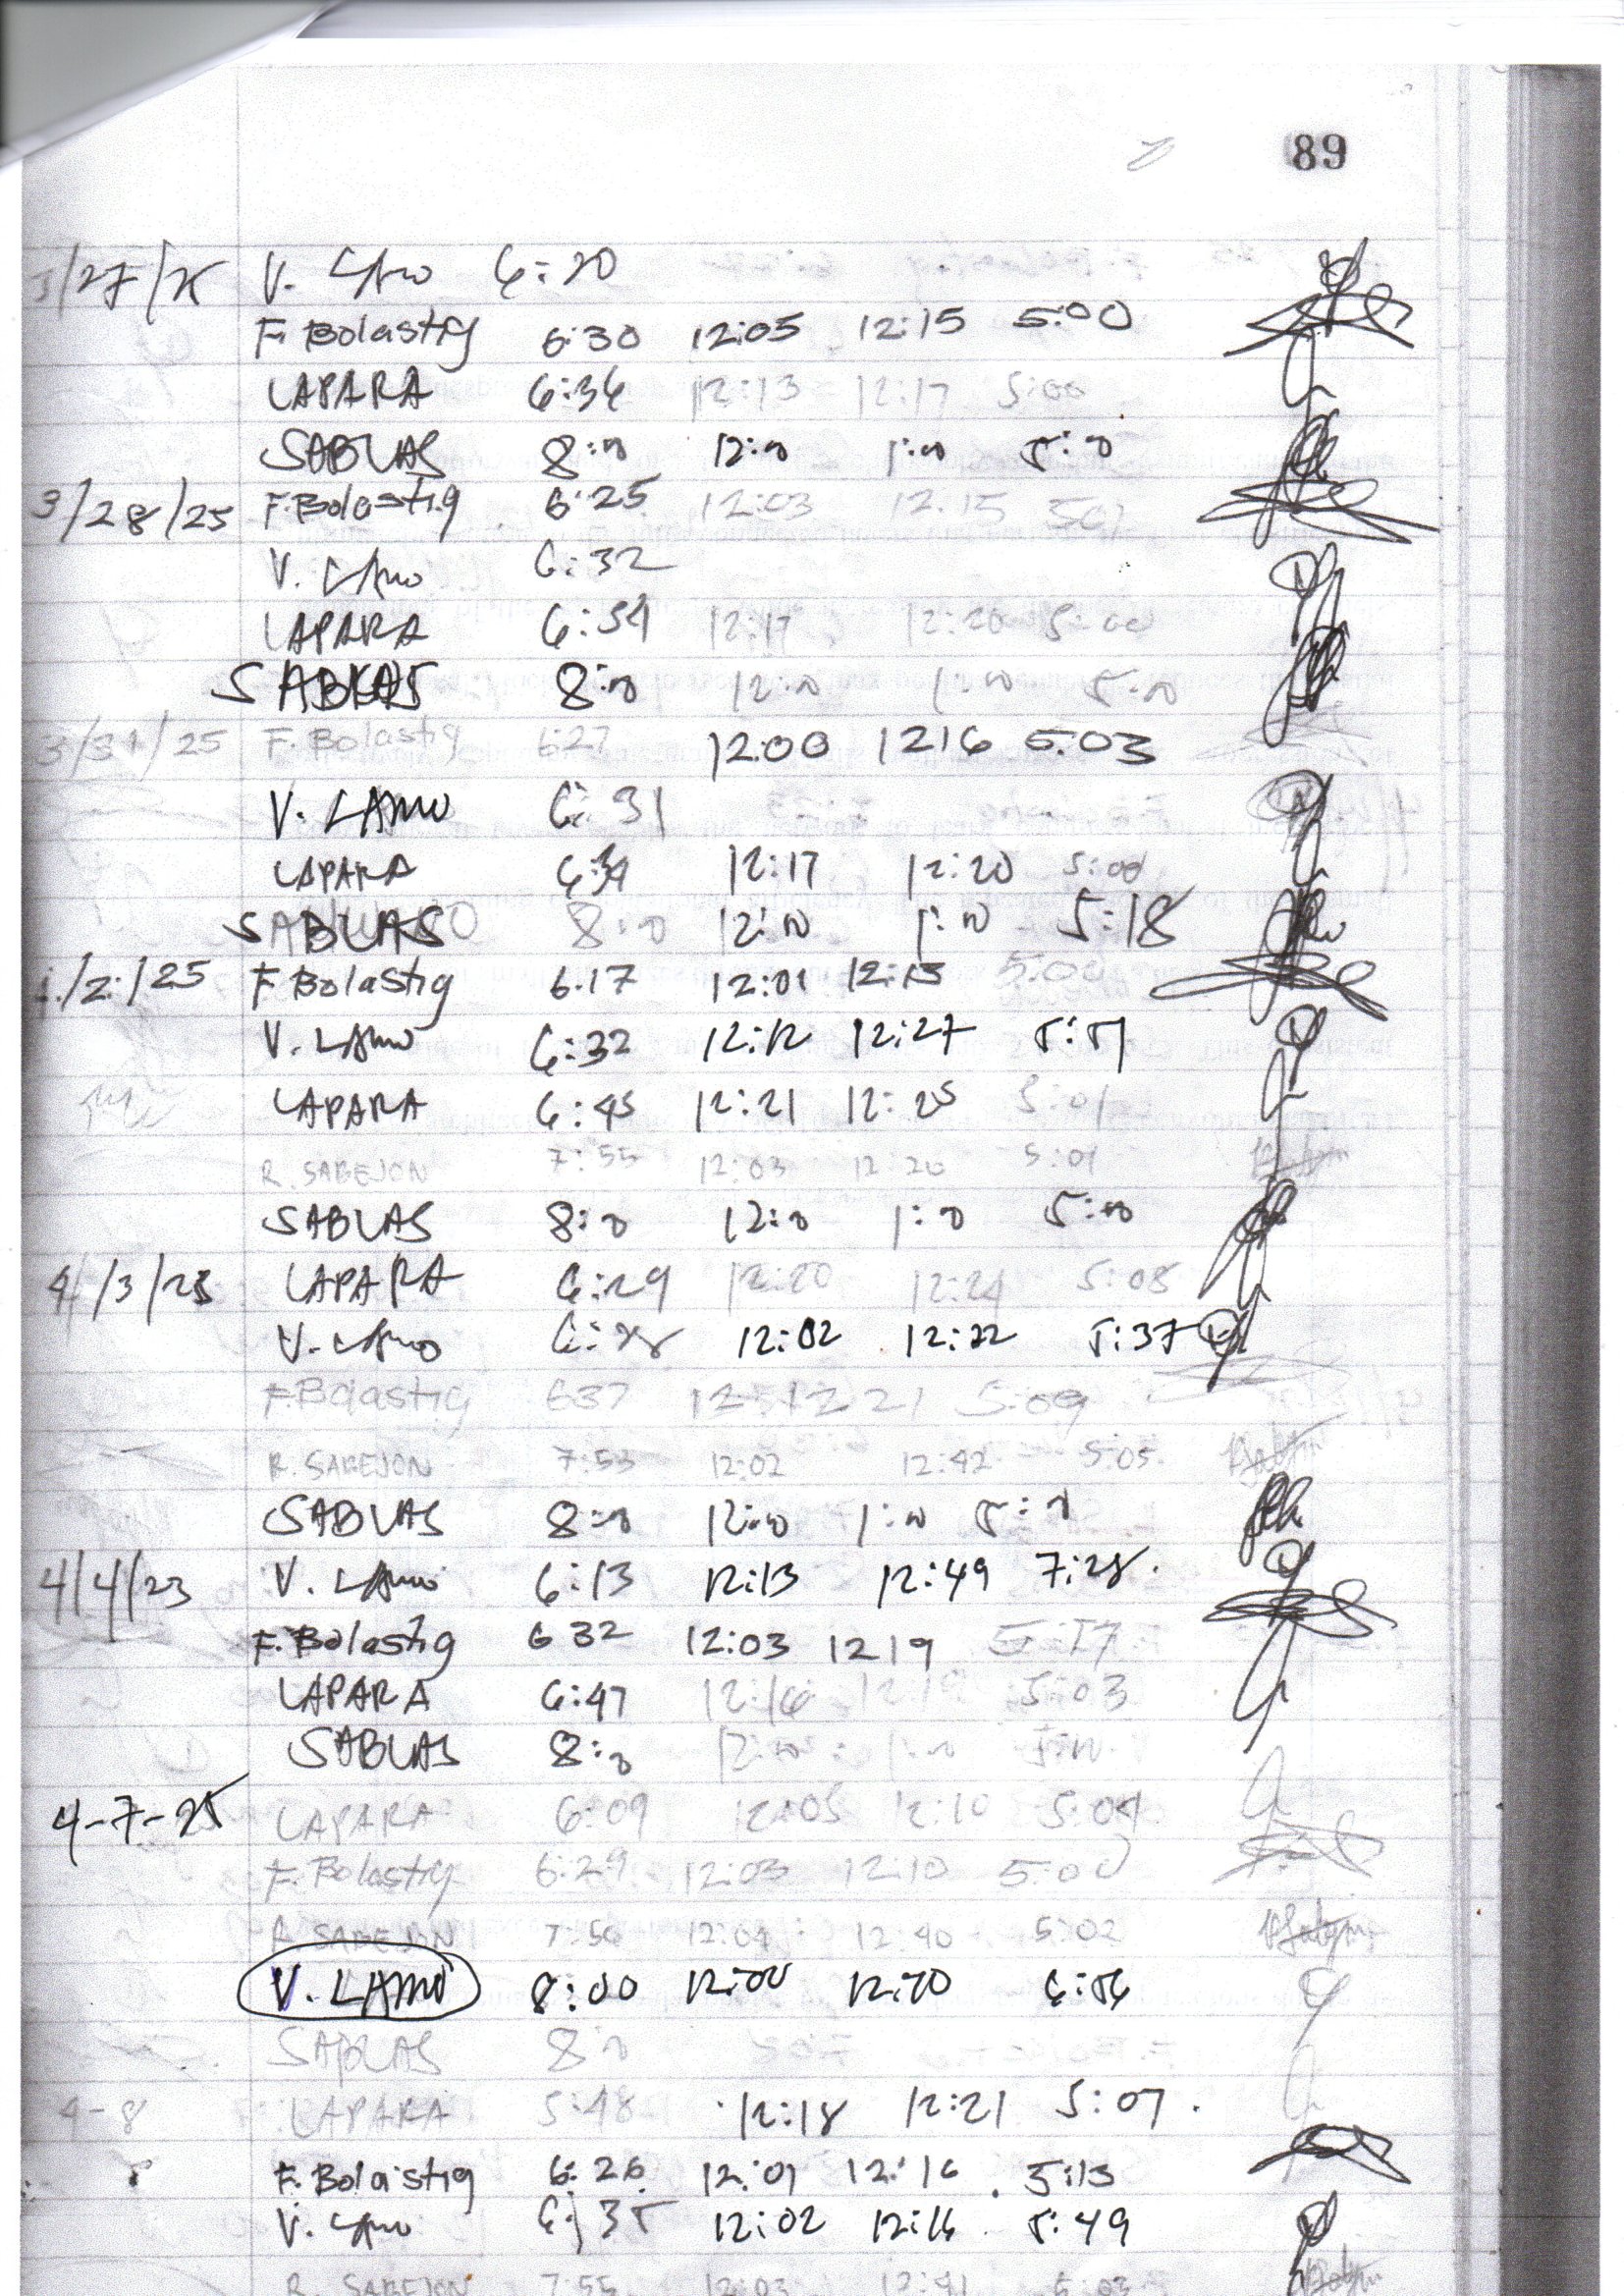 89
V. LAmo 6:20
F. Bolastig 6:30 12:05 12:15 5:00
LAPARA 6:36 12:13 12:17 5:00
SABLAS 8:00 12:00 1:00 5:00
3/28/25 F. Bolastig 6:25 12:03 12.15 501
V. LAmo 6:32
LAPARA 6:54 12:17 12:20 5:00
SABLAS 8:00 12:00 1:00 5:00
3/31/25 F. Bolastig 6:27 12:00 1216 5.03
V. LAmo 6:31
LAPARA 6:39 12:17 12:20 5:00
SABLAS 8:00 12:00 1:00 5:18
/2/25 F. Bolastig 6.17 12:01 12:13 5:00
V. LAmo 6:32 12:12 12:27 5:51
LAPARA 6:45 12:21 12:25 5:01
R. SABEJON 7:55 12:03 12:20 5:01
SABLAS 8:00 12:00 1:00 5:00
4/3/25 LAPARA 6:29 12:20 12:24 5:08
V. LAmo 12:02 12:22 5:37
F. Bolastig 637 12 12 21 5:09
R. SABEJON 7:53 12:02 12:42 5:05
SABLAS 8:00 12:00 1:00 5:00
4/4/23 V. LAmo 6:13 12:13 12:49 7:28.
F. Bolastig 6 32 12:03 12 19 5:17
LAPARA 6:47 12:16 12:19 5:03
SABLAS 8:00 12:00 1:00 5:00
4-7-25 LAPARA 6:09 12:05 12:10 5:04
F. Bolastig 6:29 12:03 12:10 5:00
R. SABEJON 7:56 12:04 12:40 5:02
V. LAmo 8:00 12:00 12:20 6:56
SABLAS 8:00
4-8 LAPARA 5:48 12:18 12:21 5:07.
F. Bolastig 6:26 12:01 12:16 5:13
V. LAmo 6:35 12:02 12:16 5:49
R. SABEJON 7:55 12:03 12:41 5:03